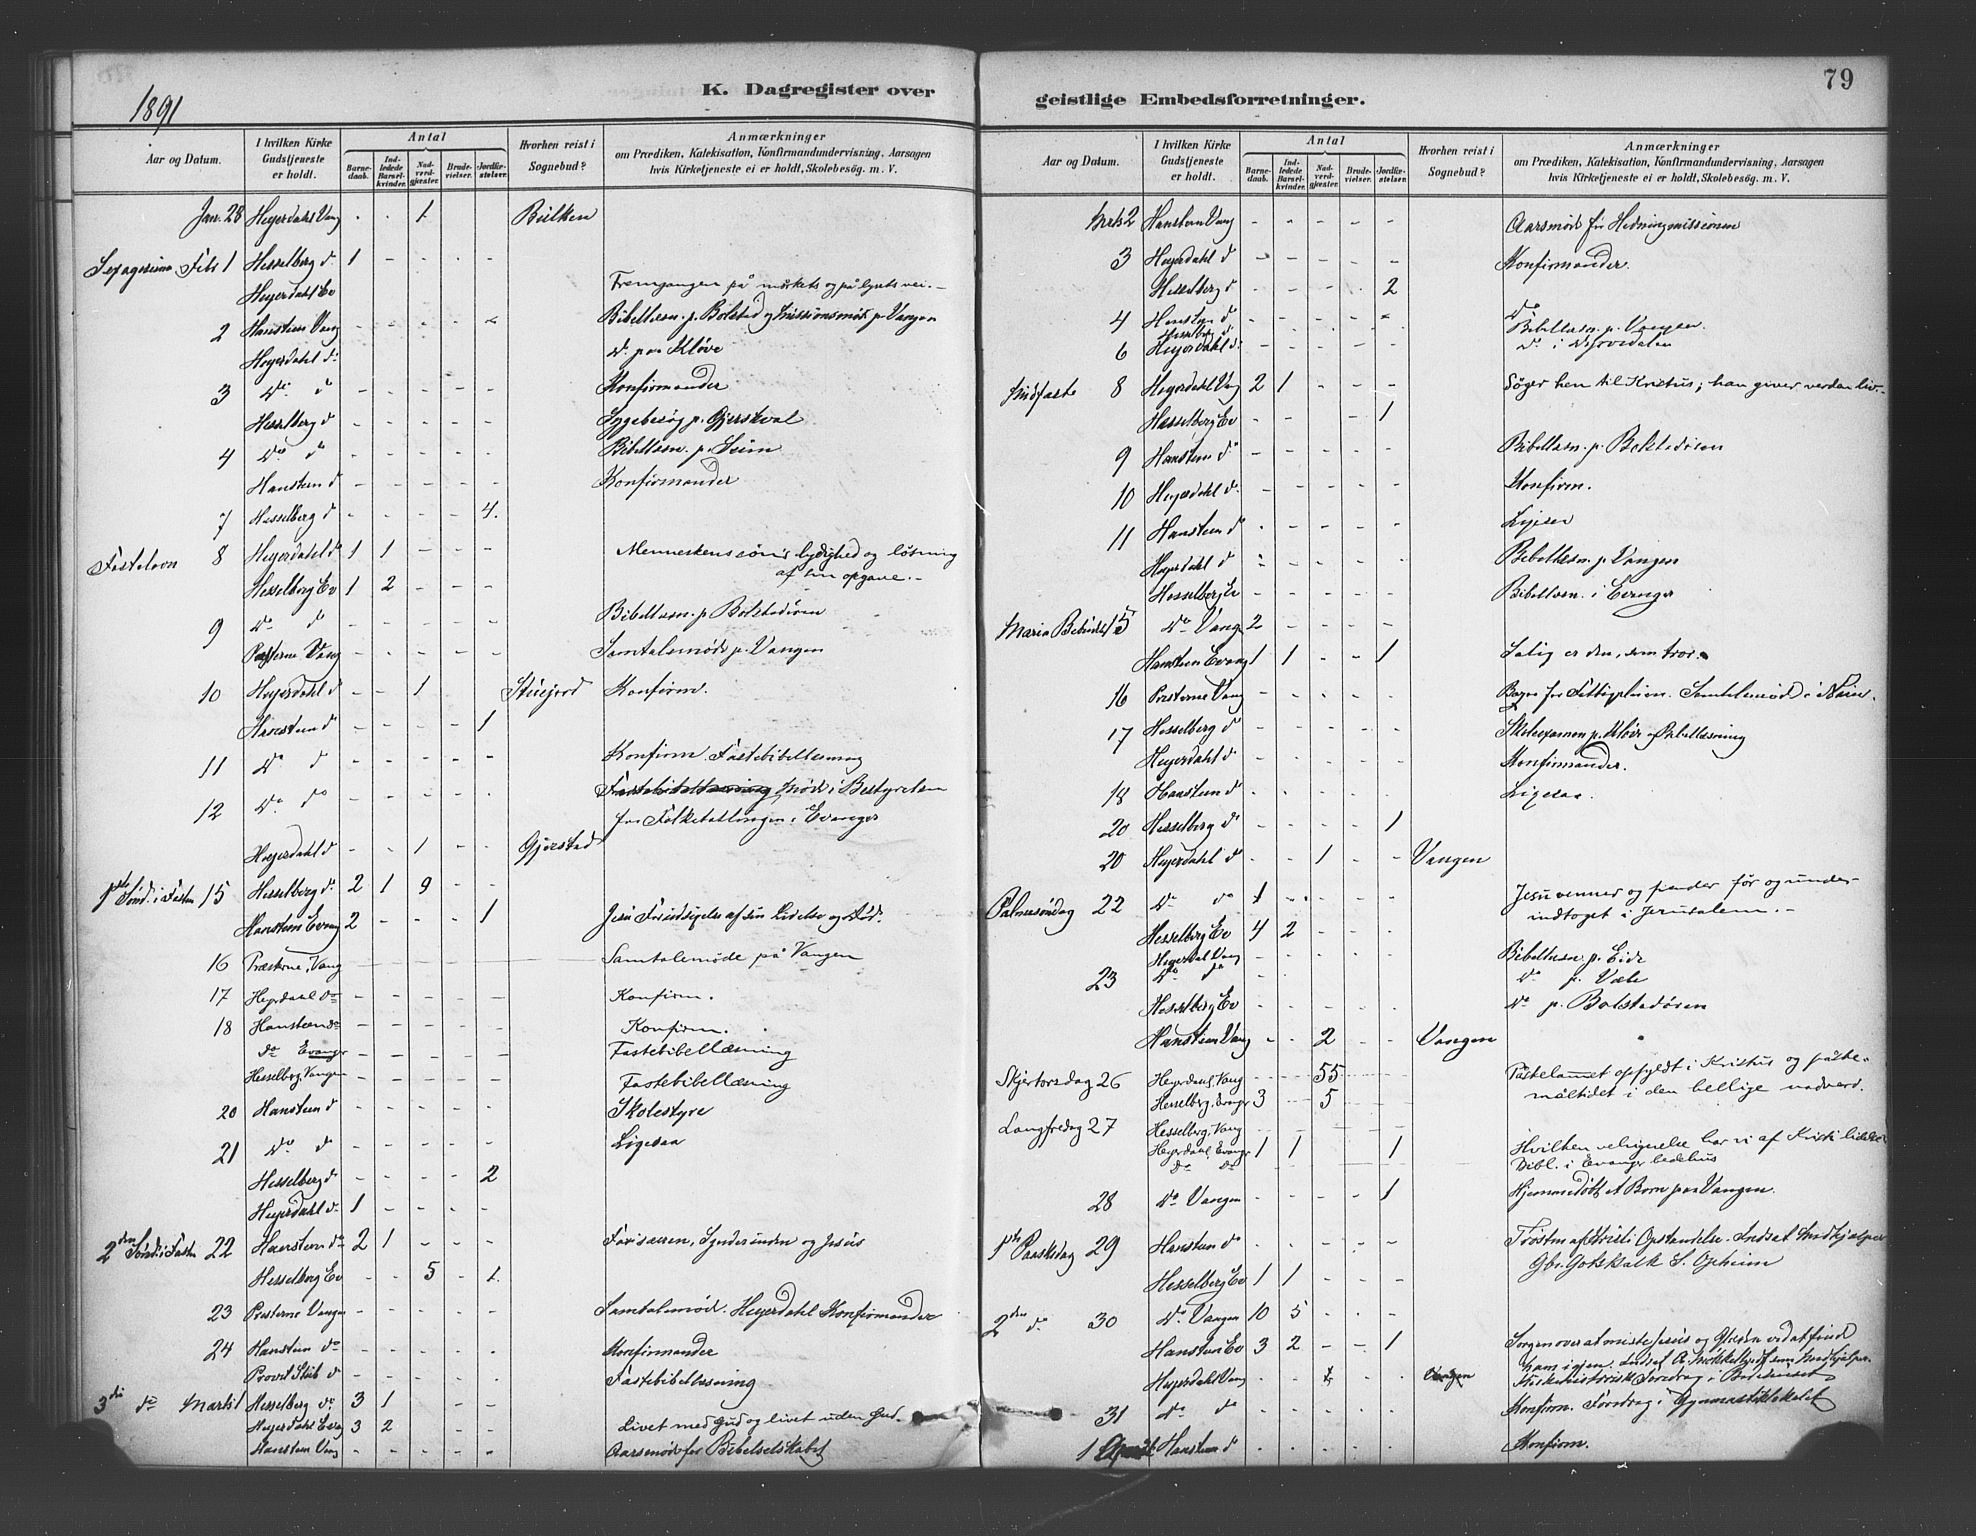 79
1891
K. Dagregister over
geistlige Embedsforretninger.
Aar og Datum.
I hvilken Kirke Gudstjeneste er holdt.
Antal
Barnedaab.
Indledede Barselkvinder.
Nadverdgjæster.
Brudevielser.
Jordfæstelser.
Hvorhen reist i Sognebud?
Anmærkninger
om Prædiken, Katekisation, Konfirmandundervisning, Aarsagen
hvis Kirketjeneste ei er holdt, Skolebesøg. m. V.
Jan. 28 Heyerdahl Vang - - 1 Bulken
Sexagesima Febr 1 Hesselberg do 1 - - - -
Heyerdahl Ev Fremgangen på mørkets og på lysets vei.-
2 Hansteen Vang - - - - - Bibellæsn. p. Bolstad og Missionsmøde p. Vangen
Heyerdahl do Do paa Kløve
3 Do do - - - - - Konfirmander
Hesselberg d - - - - - Sygebesøg p. Gjerskval
4 Do do - - - - - Bibellæsn. p. Seim
Hansteen d - - - - - Konfirmander
7 Hesselberg d - - - - 4.
Fastelavn 8 Heyerdahl do 1 1 - - - Menneskesønns lydighed og løsning
af sin opgave.-
Hesselberg Ev 1 2 - - -
9 Do do - - - - - Bibellæsn. p. Bolstadøren
Presterne Vang - - - - - Samtalemøde p. Vangen
10 Heyerdahl d - - 1 - Konfirm.
Hansteen d - - - - 1
11 Do d - - - - - Konfirm. Fastebibellæsning
12 Do do - - - - - Fastebibellæsning Møde i Bestyrelsen
for Folketællingen i Evanger
Heyerdahl d - - 1 - - Gjerstad
1ste Sønd. i Fasten 15 Hesselberg do 2 1 9 - -
Hansteen Evang 2 - - - 1 Jesu Forudsigelse af sin Lidelse og Død.
16 Præsterne, Vang Samtalemøde på Vangen
17 Heyerdahl do - - - - - Konfirm.
18 Hansteen do - - - - - Konfirm.
do Evanger - - - - - Fastebibellæsning
Hesselberg, Vangen - - - - - Fastebibellæsning
20 Hansteen d - - - - - Skolestyre
21 Do d - - - - - Ligesaa
Hesselberg do - - - - 2
Heyerdahl do 1 - - - -
2den Sønd. i Faste 22 Hansteen do 2 1 - - - Farisæeren, Synderinden og Jesus
Hesselberg Ev - - 5 - 1.
23 Presterne Vangen - - - - - Samtalemøde. Heyerdahl Konfirmander
24 Hansteen do - - - - - Konfirmander
Provst Stub d - - - - - Fastebibellæsning
3die do Marts 1 Hesselberg do 3 1 - -
Heyerdahl Evang 3 2 - - Livet med Gud og livet uden Gud.
Hansteen Vang - - - - - Aarsmøde for Bibelselskabet
Aar og Datum.
I hvilken Kirke Gudstjeneste er holdt.
Antal
Barnedaab.
Indledede Barselkvinder.
Nadverdgjæster.
Brudevielser.
Jordfæstelser.
Hvorhen reist i Sognebud?
Anmærkninger
om Prædiken, Katekisation, Konfirmandundervisning, Aarsagen
hvis Kirketjeneste ei er holdt, Skolebesøg. m. V.
Mrts 2 Hansteen Vang - - - - - Aarsmøde for Hedningmissionen
3 Heyerdahl d - - - - - Konfirmander.
Hesselberg d - - - - 2
4 Hansteen do - - - - - Do
Hesselberg d. Bibellæsn. p. Vangen.
6 Heyerdahl d. - - - - - Do i Dyrvedalen
Midfaste 8 Heyerdahl Vang 2 1 - - - Søger hen til Kristus; han giver verden liv.-
Hesselberg Ev - - 1
9 Hansteen do - - - - - Bibellæsn. p. Bolstadøren
10 Heyerdahl d. - - - - - Konfirm.
11 Hansteen do - - - - - Ligesaa
Heyerdahl d - - - - - Bibellæsn. p. Vangen
Hesselberg Ev - - - - - Bibellæsn. i Evanger
Maria Bebudels 15 Do Vangen 2 - - - -
Hansteen Evang 1 1 - - 1 Salig er den, som tror.
16 Presterne Vang - - - - - for Fattigpleien. Samtalemøde i
17 Hesselberg do - - - - - Skoleexamen p. Kløve og Bibellæsning
Heyerdahl d. - - - - - Konfirmander.
18 Hansteen d - - - - - Ligesaa.
20 Hesselberg do - - - - 1
20 Heyerdahl do - - 1 - - Vangen
Palmesøndag 22 Do do 1 - - - Jesu venner og fiender før og under
indtoget i Jerusalem.-
Hesselberg Ev 4 2 - - -
Heyerdal Vang - - - - - Bibellæsn. p. Eide
23 Do do - - Do p.
Hesselberg Ev - - - - - Do p. Bolstadøren
Hansteen Vang - - 2 - - Vangen
Skjertorsdag 26 Heyerdahl, Vang - - 55 - - Påskelammet opfyldt i Kristus og påske-
Hesselberg, Evanger 3 5 måltidet i den hellige nadverd.
Langfredag 27 Hesselberg, Vang
Heyerdahl, Evanger 1 1 - - 1 Hvilken velsignelse har vi af Kristi lidelse
do do Bibl. i Evanger bedehus
28 Do Vangen - - - - 1 Hjemmedøbt et Barn paa Vangen.
1ste Paaskedag 29 Hansteen do - - - - - Trøsten af Kristi Opstandelse. Indsat Medhjælper
Gbr. Gotskalk S. Opheim
Hesselberg Ev 1 1 - - -
2den do. 30 Do Vangen 10 5 - - -
Hansteen Ev 3 2 - - 1 Sorgen over at miste Jesus og Glæden ved at finde
ham igjen. Indsat som Medhjælper.
Heyerdahl Vang - - - - Vangen Kirkehistorisk Foredrag i Bedehuset
31 Do do - - - - - Konfirm. Foredrag i Gymnastiklokalet
1 April Hansteen d - - - - - Konfirm.